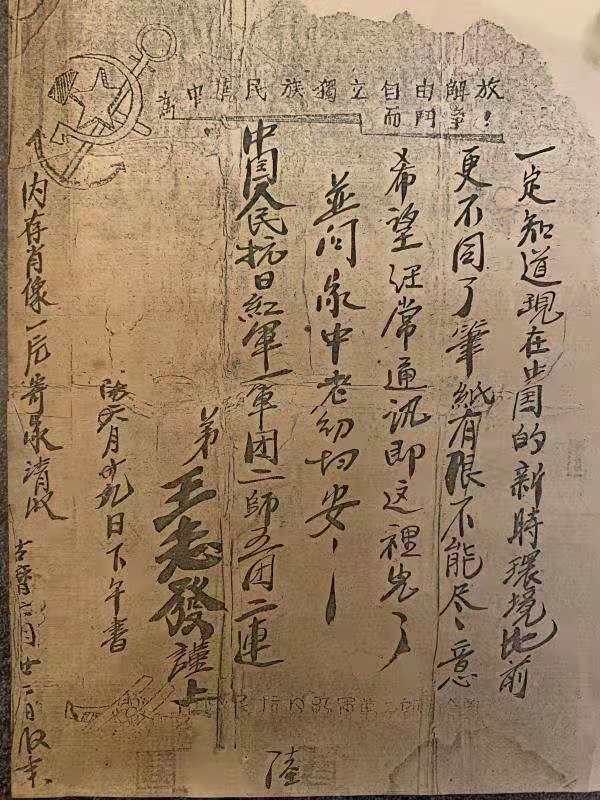 為中華民族獨立自由解放
而鬥爭!
一定知道現在中国的新時環境比前
更不同了筆紙有限不能尽、意
希望经常通訊即这裡先了
並问家中老幼均安
中国人民抗日紅軍一軍团二師五团二連
弟王志發謹上
月十九日下午書
内存肖像一片寄家清收
古曆月廿日收来
陸